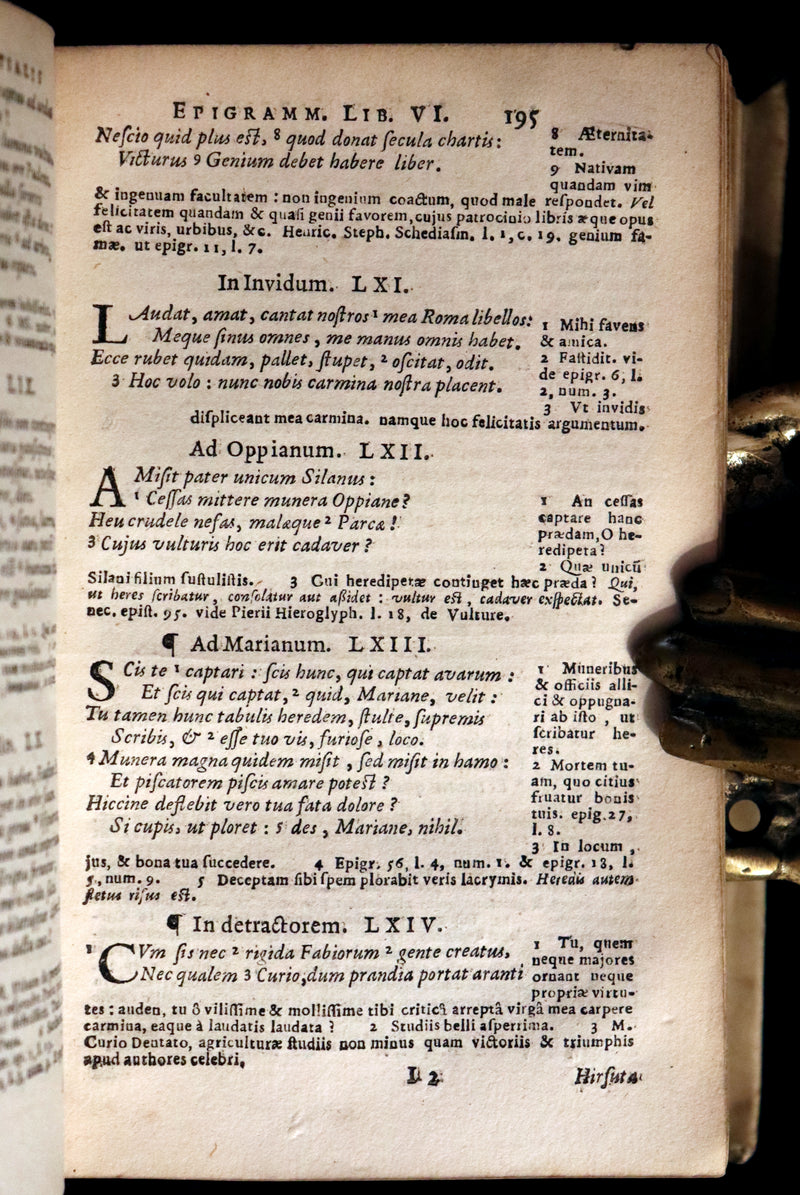 EPIGRAMM. LIB. VI. 195
Neſcio quid plus eſt, 8 quod donat ſecula chartis:
Victurus 9 Genium debet habere liber.
8 Æternita-
tem.
9 Nativam
quandam vim
& ingenuam facultatem : non ingenium coactum, quod male reſpondet. Vel
felicitatem quandam & quaſi genii favorem, cujus patrocinio libris æque opus
eſt ac viris, urbibus, &c. Henric. Steph. Schediaſm. l. 1, c. 19. genium fa-
mæ. ut epigr. 11, l. 7.
In Invidum. LXI.
LAudat, amat, cantat noſtros 1 mea Roma libellos:
Meque ſinus omnes, me manus omnis habet.
Ecce rubet quidam, pallet, ſtupet, 2 oſcitat, odit.
3 Hoc volo : nunc nobis carmina noſtra placent.
1 Mihi favens
& amica.
2 Faſtidit. vi-
de epigr. 6, l.
2, num. 3.
3 Vt invidis
diſpliceant mea carmina. namque hoc felicitatis argumentum.
Ad Oppianum. LXII.
AMiſit pater unicum Silanus :
1 Ceſſas mittere munera Oppiane?
Heu crudele nefas, malæque 2 Parcæ !
3 Cujus vulturis hoc erit cadaver ?
1 An ceſſas
captare hanc
prædam, O he-
redipeta?
2 Quæ unicū
Silani filium ſuſtuliſtis. 3 Cui heredipetæ continget hæc præda? Qui,
ut heres ſcribatur, conſolatur aut aſſidet : vultur eſt, cadaver exſpectat. Se-
nec. epiſt. 95. vide Pierii Hieroglyph. l. 18, de Vulture.
¶ Ad Marianum. LXIII.
SCis te 1 captari : ſcis hunc, qui captat avarum :
Et ſcis qui captat, 2 quid, Mariane, velit :
Tu tamen hunc tabulis heredem, ſtulte, ſupremis
Scribis, & 2 eſſe tuo vis, furioſe, loco.
4 Munera magna quidem miſit, ſed miſit in hamo :
Et piſcatorem piſcis amare poteſt ?
Hiccine deflebit vero tua fata dolore ?
Si cupis, ut ploret : 5 des, Mariane, nihil.
1 Muneribus
& officiis alli-
ci & oppugna-
ri ab iſto, ut
ſcribatur he-
res.
2 Mortem tu-
am, quo citius
fruatur bonis
tuis. epig. 27,
l. 8.
3 In locum,
jus, & bona tua ſuccedere. 4 Epigr. 56, l. 4, num. 1. & epigr. 18, l.
5, num. 9. 5 Deceptam ſibi ſpem plorabit veris lacrymis. Heredis autem
fletus riſus eſt.
¶ In detractorem. LXIV.
1 CVm ſis nec 2 rigida Fabiorum 2 gente creatus,
Nec qualem 3 Curio, dum prandia portat aranti
1 Tu, quem
neque majores
ornant neque
propriæ virtu-
tes : auden, tu ô viliſſime & molliſſime tibi criticâ arreptâ virgâ mea carpere
carmina, eaque à laudatis laudata ? 2 Studiis belli aſperrima. 3 M.
Curio Dentato, agriculturæ ſtudiis non minus quam victoriis & triumphis
apud authores celebri,
L 2 Hirſuta